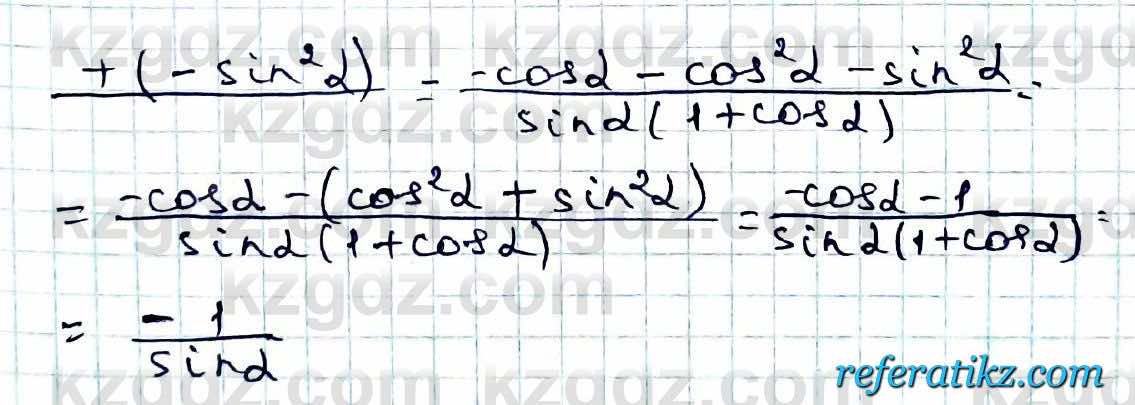 +(-sin²α) = -cosα - cos²α - sin²α =
sinα(1+cosα)
= -cosα - (cos²α + sin²α) = -cosα - 1 =
sinα(1+cosα) sinα(1+cosα)
= -1
sinα
kzgdz.com
referatikz.com